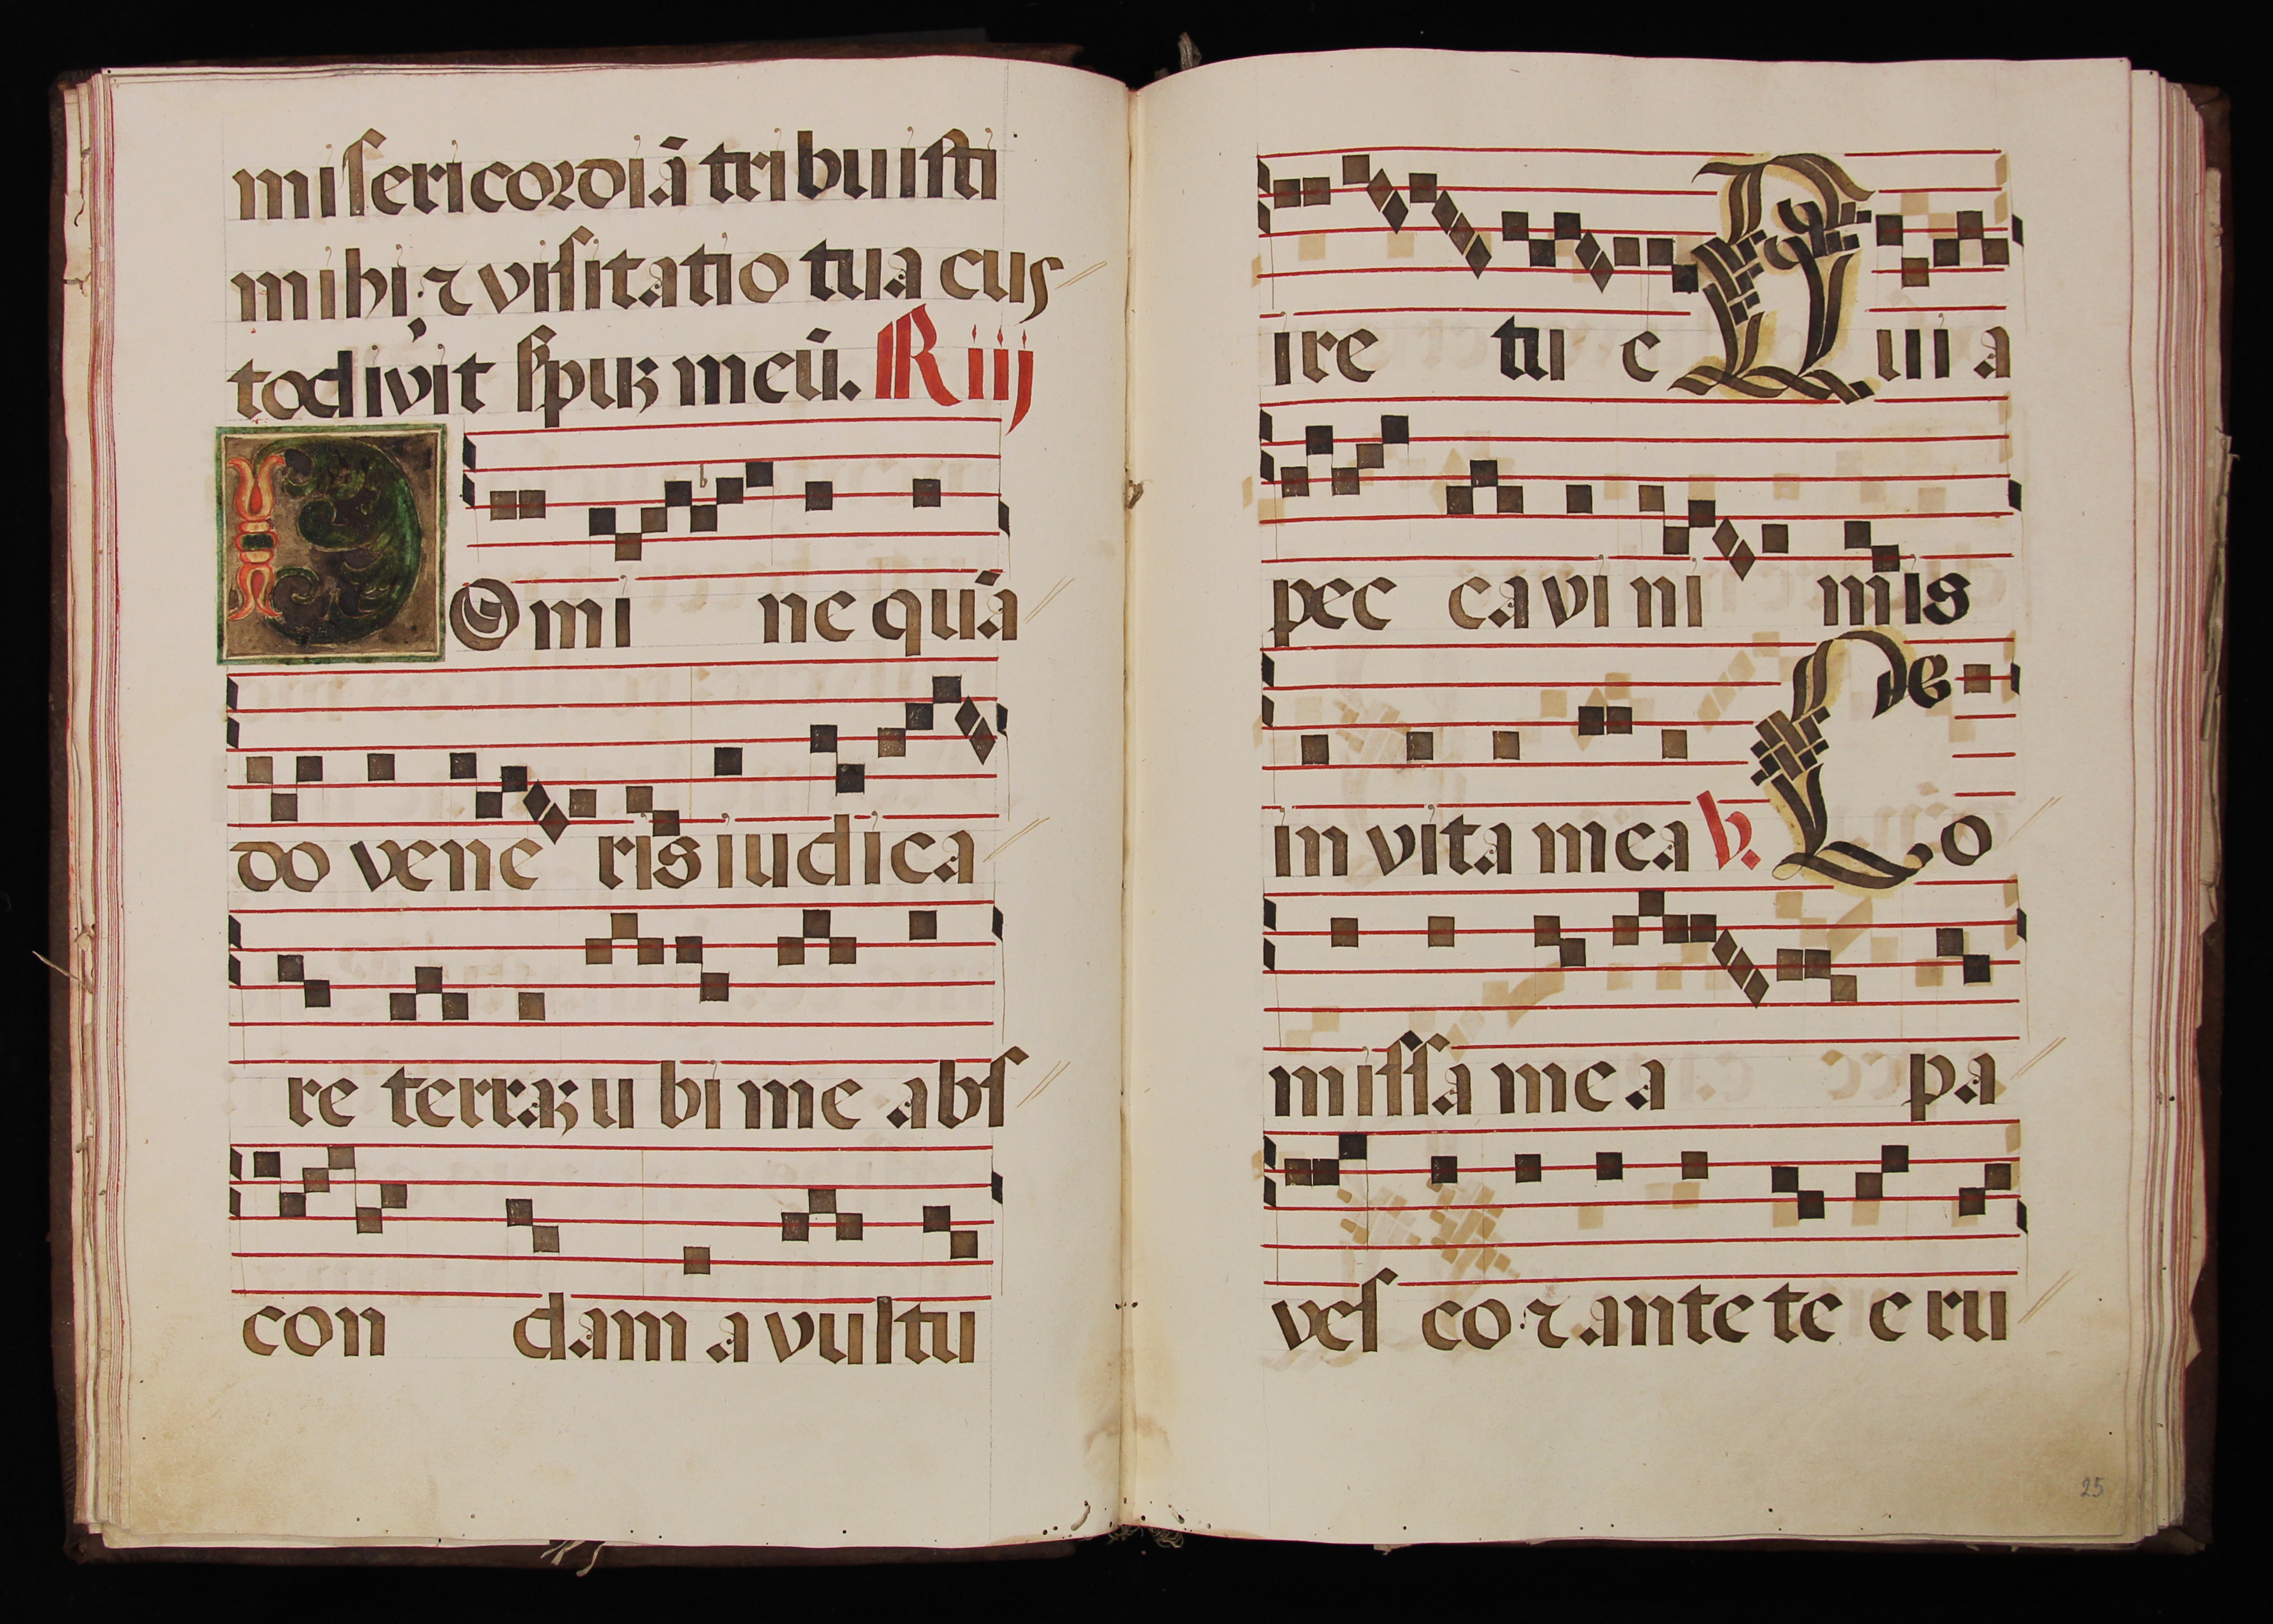 miſericordiā tribuiſti
mihi: ⁊ viſitatio tua cus
todivit ſpuꝫ meū. R iij
DOmi ne quā
do vene ris iudica
re terraꝫ u bi me abſ
con dam a vultu
ire tu e Quia
pec cavi ni mis
in vita mea V. Co
miſſa mea pa
veſ co ⁊ ante te eru
25